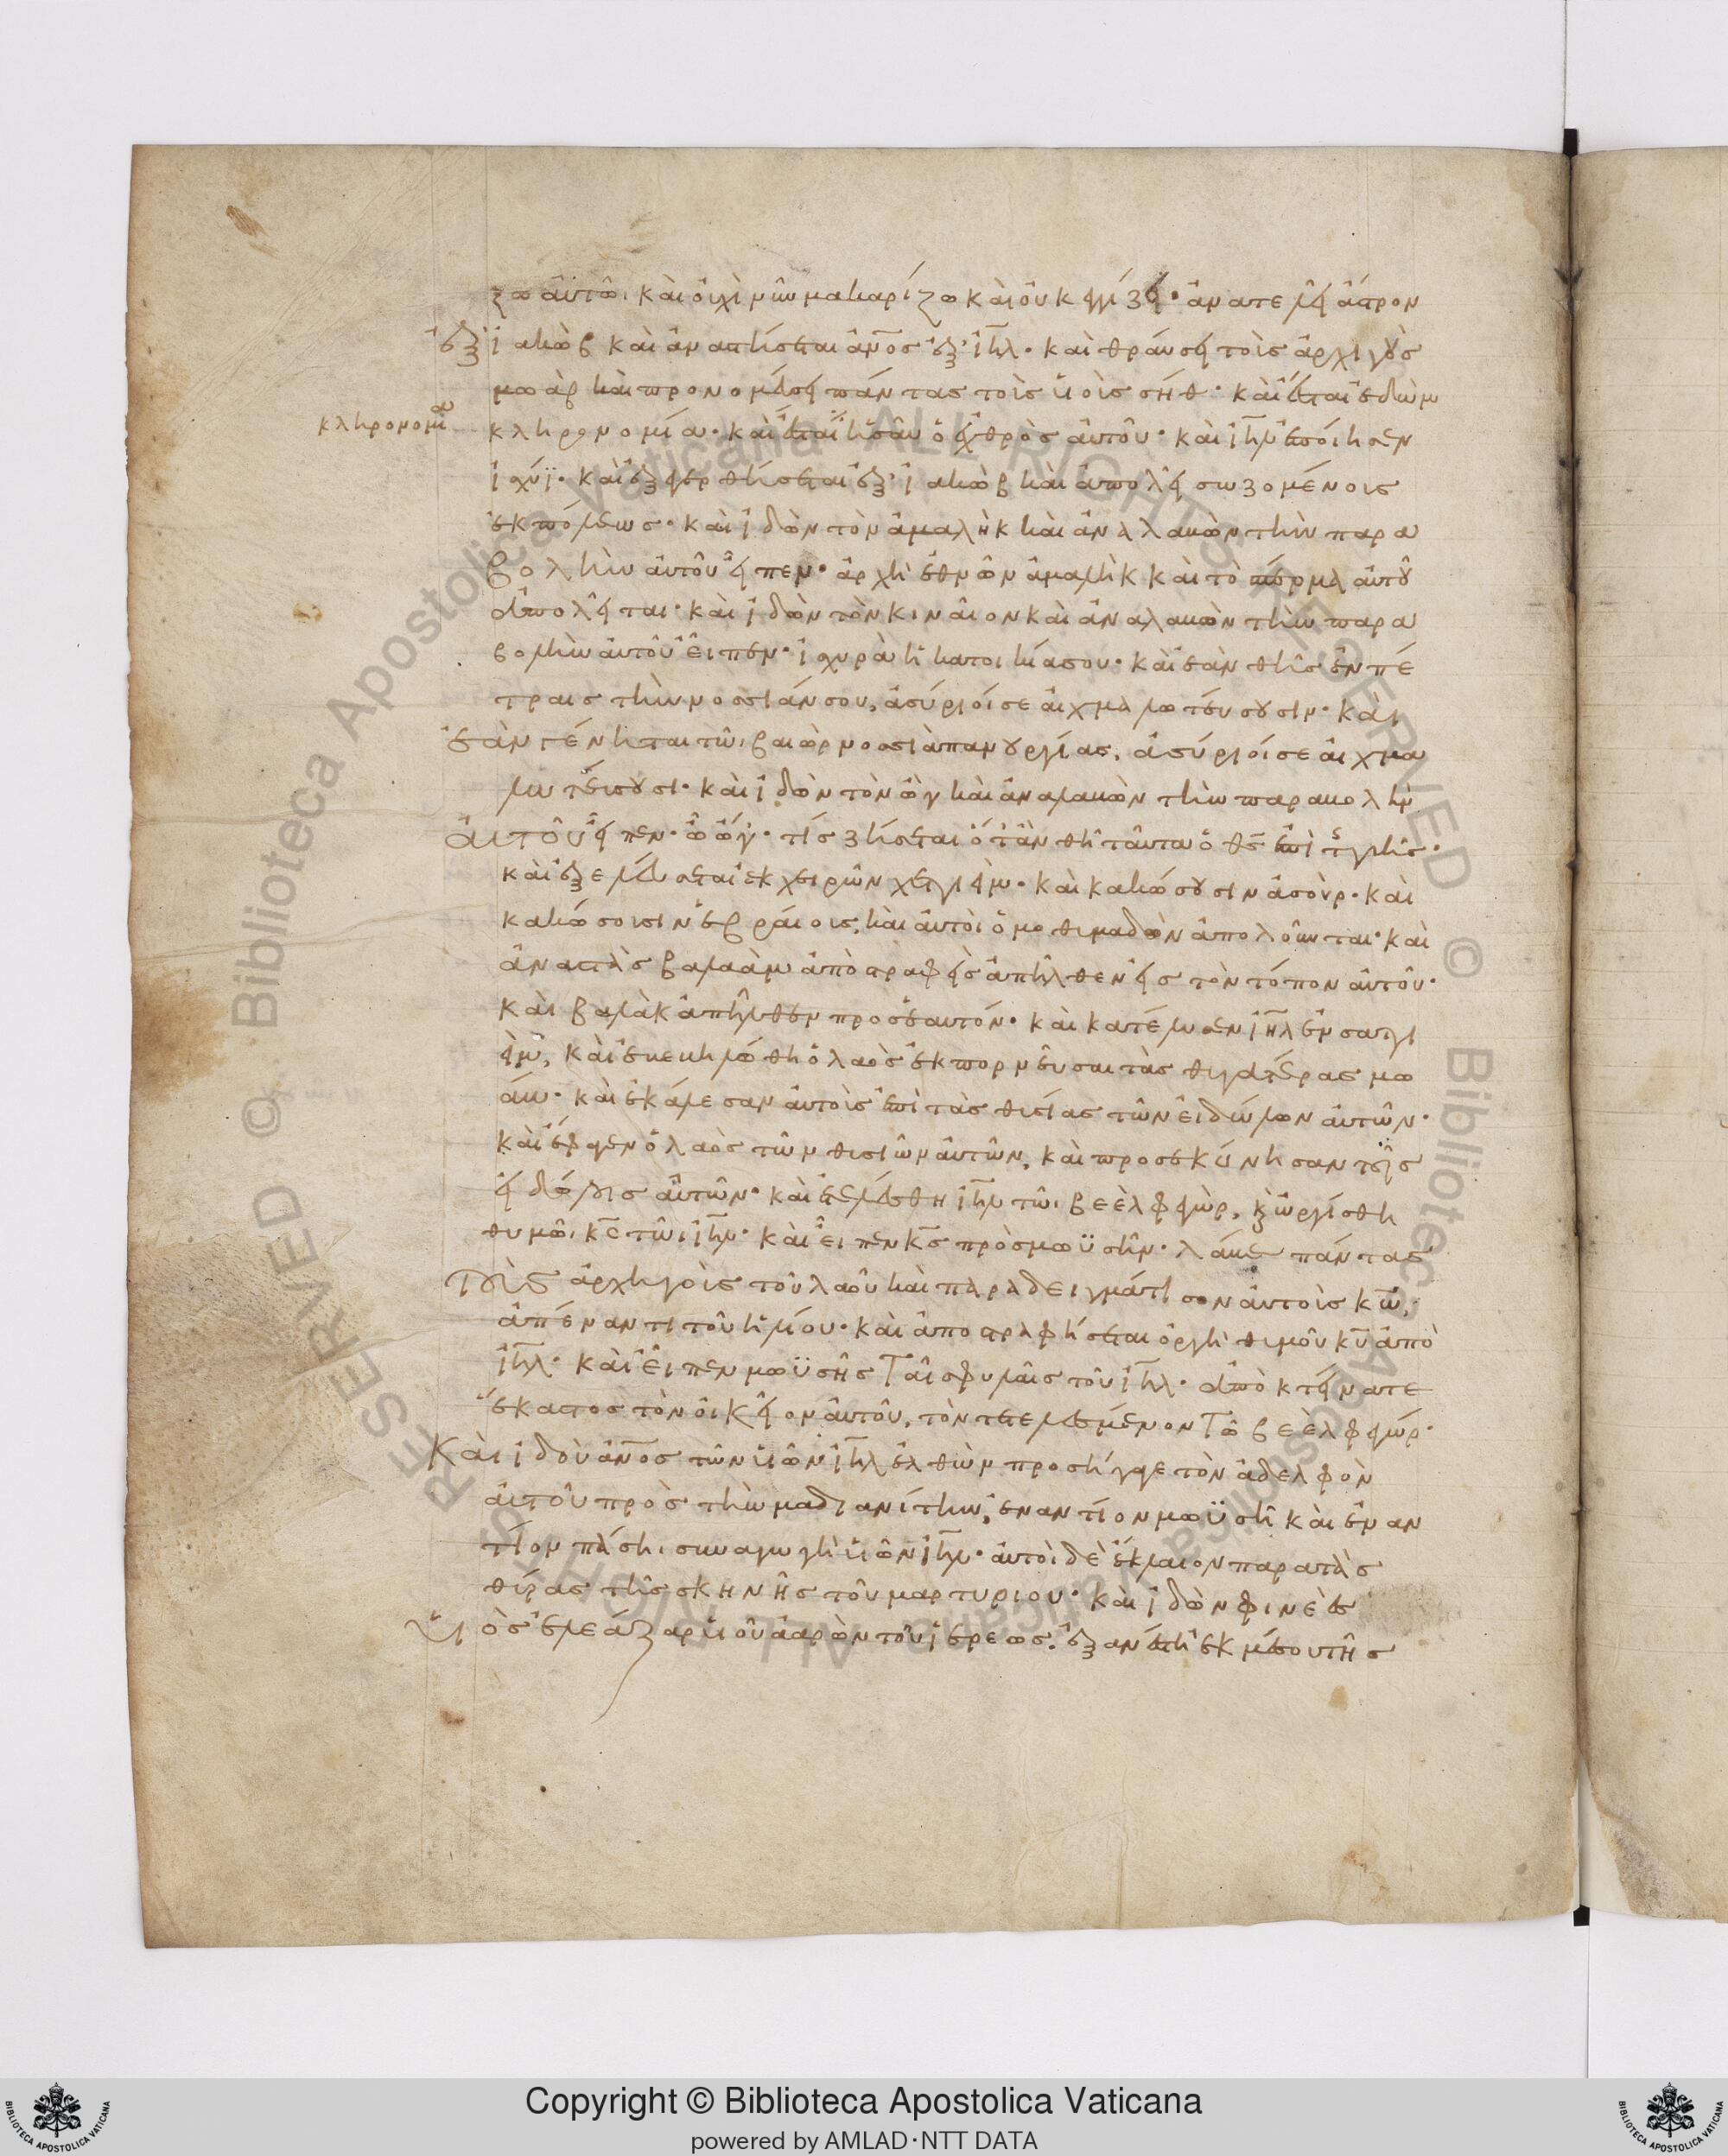 ζω αὐτῶ. καὶ οὐχὶ νῦν μακαρίζω καὶ οὐκ ἐγγίζει· ἀνατελεῖ ἄστρον
ἐξ ἰακὼβ καὶ ἀναστήσεται ἄνος ἐξ ιηλ· καὶ θραύσει τοὺς ἀρχιγοὺς
μωὰβ καὶ προνομεύσει πάντας τοὺς υἱοὺς σήθ· καὶ ἔσται ἐδὼμ
κληρονομία
κληρονομία· καὶ ἔσται ἠσαῦ ὁ ἐχθρὸς αὐτοῦ· καὶ ιηλ ἐποίησεν
ἰσχύϊ· καὶ ἐξεγερθήσεται ἐξ ἰακὼβ καὶ ἀπολεῖ σωζομένους
ἐκ πόλεως· καὶ ἰδὼν τὸν ἀμαλὴκ καὶ ἀναλαβὼν τὴν παρα
βολὴν αὐτοῦ εἶπεν· ἀρχὴ ἐθνῶν ἀμαλὴκ καὶ τὸ σπέρμα αὐτοῦ
ἀπολεῖται· καὶ ἰδὼν τὸν κιναῖον καὶ ἀναλαβὼν τὴν παρα
βολὴν αὐτοῦ εἶπεν· ἰσχυρὰ ἡ κατοικία σου· καὶ ἐὰν θῆς ἐν πέ
τραις τὴν νοσσιάν σου, ἀσύριοί σε αἰχμαλωτεύσουσιν· καὶ
ἐὰν γένηται τῶ βαιὼρ νοσσιὰ πανουργίας, ἀσύριοί σε αἰχμα
λωτεύσουσι· καὶ ἰδὼν τὸν ὢγ καὶ ἀναλαβὼν τὴν παραβολὴν
αὐτοῦ εἶπεν· ὦ ὤγ· τίς ζήσεται ὅταν θῆ ταῦτα ὁ θς ἐπὶ τῆς γῆς·
καὶ ἐξελεύσεται ἐκ χειρῶν χετιείμ· καὶ κακώσουσιν ἀσοὺρ· καὶ
κακώσουσιν ἑβραίους, καὶ αὐτοὶ ὁμοθυμαδὸν ἀπολοῦνται· καὶ
ἀναστὰς βαλαὰμ ἀποστραφεὶς ἀπῆλθεν εἰς τὸν τόπον αὐτοῦ·
καὶ βαλὰκ ἀπῆλθεν προς ἑαυτόν· καὶ κατέλυσεν ιηλ ἐν σαττι
είν, καὶ ἐβεβηλώθη ὁ λαὸς ἐκπορνεῦσαι τὰς θυγατέρας μω
άβ· καὶ ἐκάλεσαν αὐτοὺς ἐπὶ τὰς θυσίας τῶν εἰδώλων αὐτῶν·
καὶ ἔφαγεν ὁ λαὸς τῶν θυσιῶν αὐτῶν, καὶ προσεκύνησαν τοῖς
εἰδώλοις αὐτῶν· καὶ ἐτελέσθη ιηλ τῶ βεὲλφεγώρ, καὶ ὠργίσθη
θυμῶ κς τῶ ιηλ· καὶ εἶπεν κς πρὸς μωϋσῆν· λάβε πάντας
τοὺς ἀρχηγοὺς τοῦ λαοῦ καὶ παραδειγμάτισον αὐτοὺς κω,
ἀπέναντι τοῦ ἡλίου· καὶ ἀποστραφήσεται ὀργὴ θυμοῦ κυ ἀπὸ
ιηλ· καὶ εἶπεν μωϋσῆς ταῖς φυλαῖς τοῦ ιηλ· ἀποκτείνατε
ἕκαστος τὸν οἰκεῖον αὐτοῦ, τὸν τετελεσμένον τῶ βεὲλφεγώρ·
Καὶ ἰδοὺ ἄνος τῶν υἱῶν ιηλ ἐλθὼν προσήγαγε τὸν ἀδελφὸν
αὐτοῦ πρὸς τὴν μαδιανίτην, ἐναντίον μωϋσῆ καὶ ἐναν
τίον πάση συναγωγῆ υἱῶν ιηλ· αὐτοὶ δὲ ἔκλαιον παρα τὰς
θύρας τῆς σκηνῆς τοῦ μαρτυρίου· καὶ ἰδὼν φινεὲς
υἱὸς ἐλεάζαρ υἱοῦ ἀαρὼν τοῦ ἱερέως, ἐξανέστη ἐκ μέσου τῆς
Copyright © Biblioteca Apostolica Vaticana
powered by AMLAD·NTT DATA